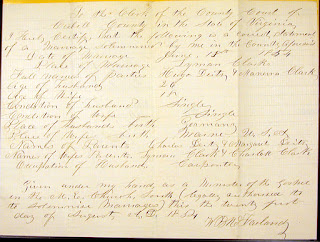 To the Clerk of the County Court of
County in the State of Virginia
I Hereby Certify that the following is a correct Statement
of a Marriage Solemnized by me in the County aforesaid
Date of Marriage June 18th 1854
Place of Marriage Lyman Clark's
Full names of Parties Hugo Deitz & Clark
Age of Husband 26
Age of Wife 18
Condition of Husband Single
Condition of Wife Single
Place of Husband's birth Germany
Place of Wife's birth Maine U. S. A
Names of Parents Charles Deitz & Margaret Deitz
Names of Wifes Parents Lyman Clark & Clark
Occupation of Husband Carpenter
Given under my hand, as a Minister of the Gospel
in the M. E. Church, South (legally authorised
to Solemnize Marriages) this the twenty first
day of August A. D. 1854